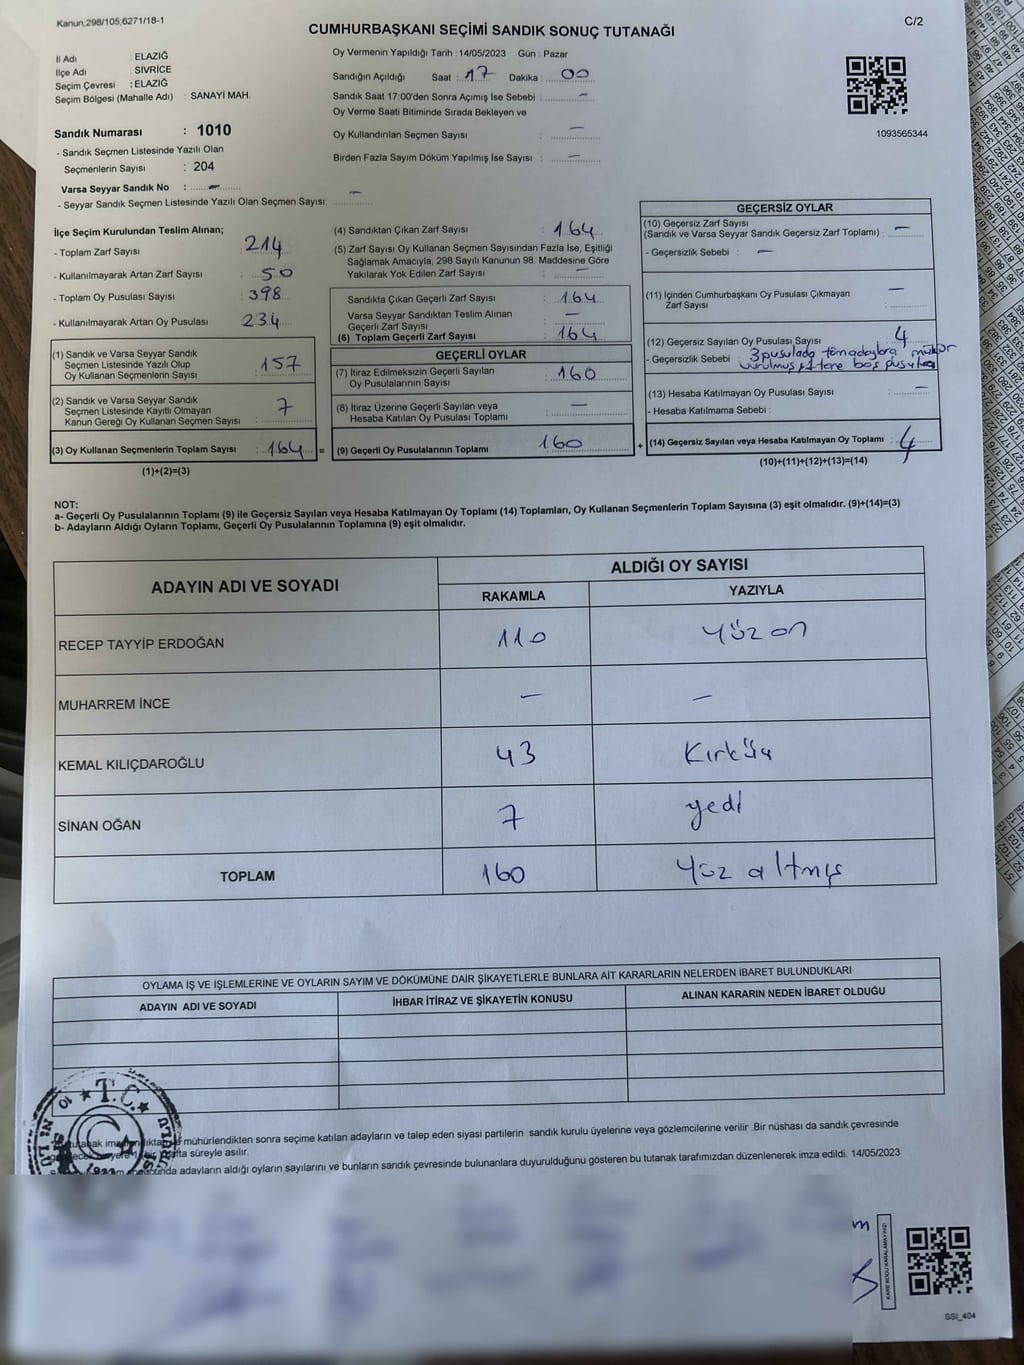 Kanun,298/105,6271/18-1
C/2
CUMHURBAŞKANI SEÇİMİ SANDIK SONUÇ TUTANAĞI
İl Adı : ELAZIĞ
İlçe Adı : SİVRİCE
Seçim Çevresi : ELAZIĞ
Seçim Bölgesi (Mahalle Adı) : SANAYİ MAH.
Sandık Numarası : 1010
- Sandık Seçmen Listesinde Yazılı Olan
Seçmenlerin Sayısı : 204
Varsa Seyyar Sandık No : –
- Seyyar Sandık Seçmen Listesinde Yazılı Olan Seçmen Sayısı: –
Oy Vermenin Yapıldığı Tarih : 14/05/2023 Gün : Pazar
Sandığın Açıldığı Saat : 17 Dakika : 00
Sandık Saat 17:00'den Sonra Açımış İse Sebebi : –
Oy Verme Saati Bitiminde Sırada Bekleyen ve
Oy Kullandırılan Seçmen Sayısı : –
Birden Fazla Sayım Döküm Yapılmış İse Sayısı : –
1093565344
İlçe Seçim Kurulundan Teslim Alınan;
- Toplam Zarf Sayısı : 214
- Kullanılmayarak Artan Zarf Sayısı : 50
- Toplam Oy Pusulası Sayısı : 398
- Kullanılmayarak Artan Oy Pusulası : 234
(1) Sandık ve Varsa Seyyar Sandık
Seçmen Listesinde Yazılı Olup
Oy Kullanan Seçmenlerin Sayısı : 157
(2) Sandık ve Varsa Seyyar Sandık
Seçmen Listesinde Kayıtlı Olmayan
Kanun Gereği Oy Kullanan Seçmen Sayısı : 7
(3) Oy Kullanan Seçmenlerin Toplam Sayısı : 164 =
(1)+(2)=(3)
(4) Sandıktan Çıkan Zarf Sayısı : 164
(5) Zarf Sayısı Oy Kullanan Seçmen Sayısından Fazla İse, Eşitliği
Sağlamak Amacıyla, 298 Sayılı Kanunun 98. Maddesine Göre
Yakılarak Yok Edilen Zarf Sayısı : –
Sandıkta Çıkan Geçerli Zarf Sayısı : 164
Varsa Seyyar Sandıktan Teslim Alınan
Geçerli Zarf Sayısı : –
(6) Toplam Geçerli Zarf Sayısı : 164
GEÇERLİ OYLAR
(7) İtiraz Edilmeksizin Geçerli Sayılan
Oy Pusulalarının Sayısı : 160
(8) İtiraz Üzerine Geçerli Sayılan veya
Hesaba Katılan Oy Pusulası Toplamı : –
(9) Geçerli Oy Pusulalarının Toplamı 160 +
GEÇERSİZ OYLAR
(10) Geçersiz Zarf Sayısı
(Sandık ve Varsa Seyyar Sandık Geçersiz Zarf Toplamı) : –
- Geçersizlik Sebebi : –
(11) İçinden Cumhurbaşkanı Oy Pusulası Çıkmayan
Zarf Sayısı : –
(12) Geçersiz Sayılan Oy Pusulası Sayısı : 4
- Geçersizlik Sebebi : 3 pusulada tüm adaylara mühür
vurulmuş 1 tane boş pusula
(13) Hesaba Katılmayan Oy Pusulası Sayısı : –
- Hesaba Katılmama Sebebi :
(14) Geçersiz Sayılan veya Hesaba Katılmayan Oy Toplamı : 4
(10)+(11)+(12)+(13)=(14)
NOT:
a- Geçerli Oy Pusulalarının Toplamı (9) ile Geçersiz Sayılan veya Hesaba Katılmayan Oy Toplamı (14) Toplamları, Oy Kullanan Seçmenlerin Toplam Sayısına (3) eşit olmalıdır. (9)+(14)=(3)
b- Adayların Aldığı Oyların Toplamı, Geçerli Oy Pusulalarının Toplamına (9) eşit olmalıdır.
ADAYIN ADI VE SOYADI ALDIĞI OY SAYISI
RAKAMLA YAZIYLA
RECEP TAYYİP ERDOĞAN 110 Yüz on
MUHARREM İNCE – –
KEMAL KILIÇDAROĞLU 43 Kırküç
SİNAN OĞAN 7 yedi
TOPLAM 160 Yüz altmış
OYLAMA İŞ VE İŞLEMLERİNE VE OYLARIN SAYIM VE DÖKÜMÜNE DAİR ŞİKAYETLERLE BUNLARA AİT KARARLARIN NELERDEN İBARET BULUNDUKLARI
ADAYIN ADI VE SOYADI İHBAR İTİRAZ VE ŞİKAYETİN KONUSU ALINAN KARARIN NEDEN İBARET OLDUĞU
T.C.
mühürlendikten sonra seçime katılan adayların ve talep eden siyasi partilerin sandık kurulu üyelerine veya gözlemcilerine verilir .Bir nüshası da sandık çevresinde
süreyle asılır.
adayların aldığı oyların sayılarını ve bunların sandık çevresinde bulunanlara duyurulduğunu gösteren bu tutanak tarafımızdan düzenlenerek imza edildi. 14/05/2023
KARE KODU KARALAMAYINIZ!
SSI_404